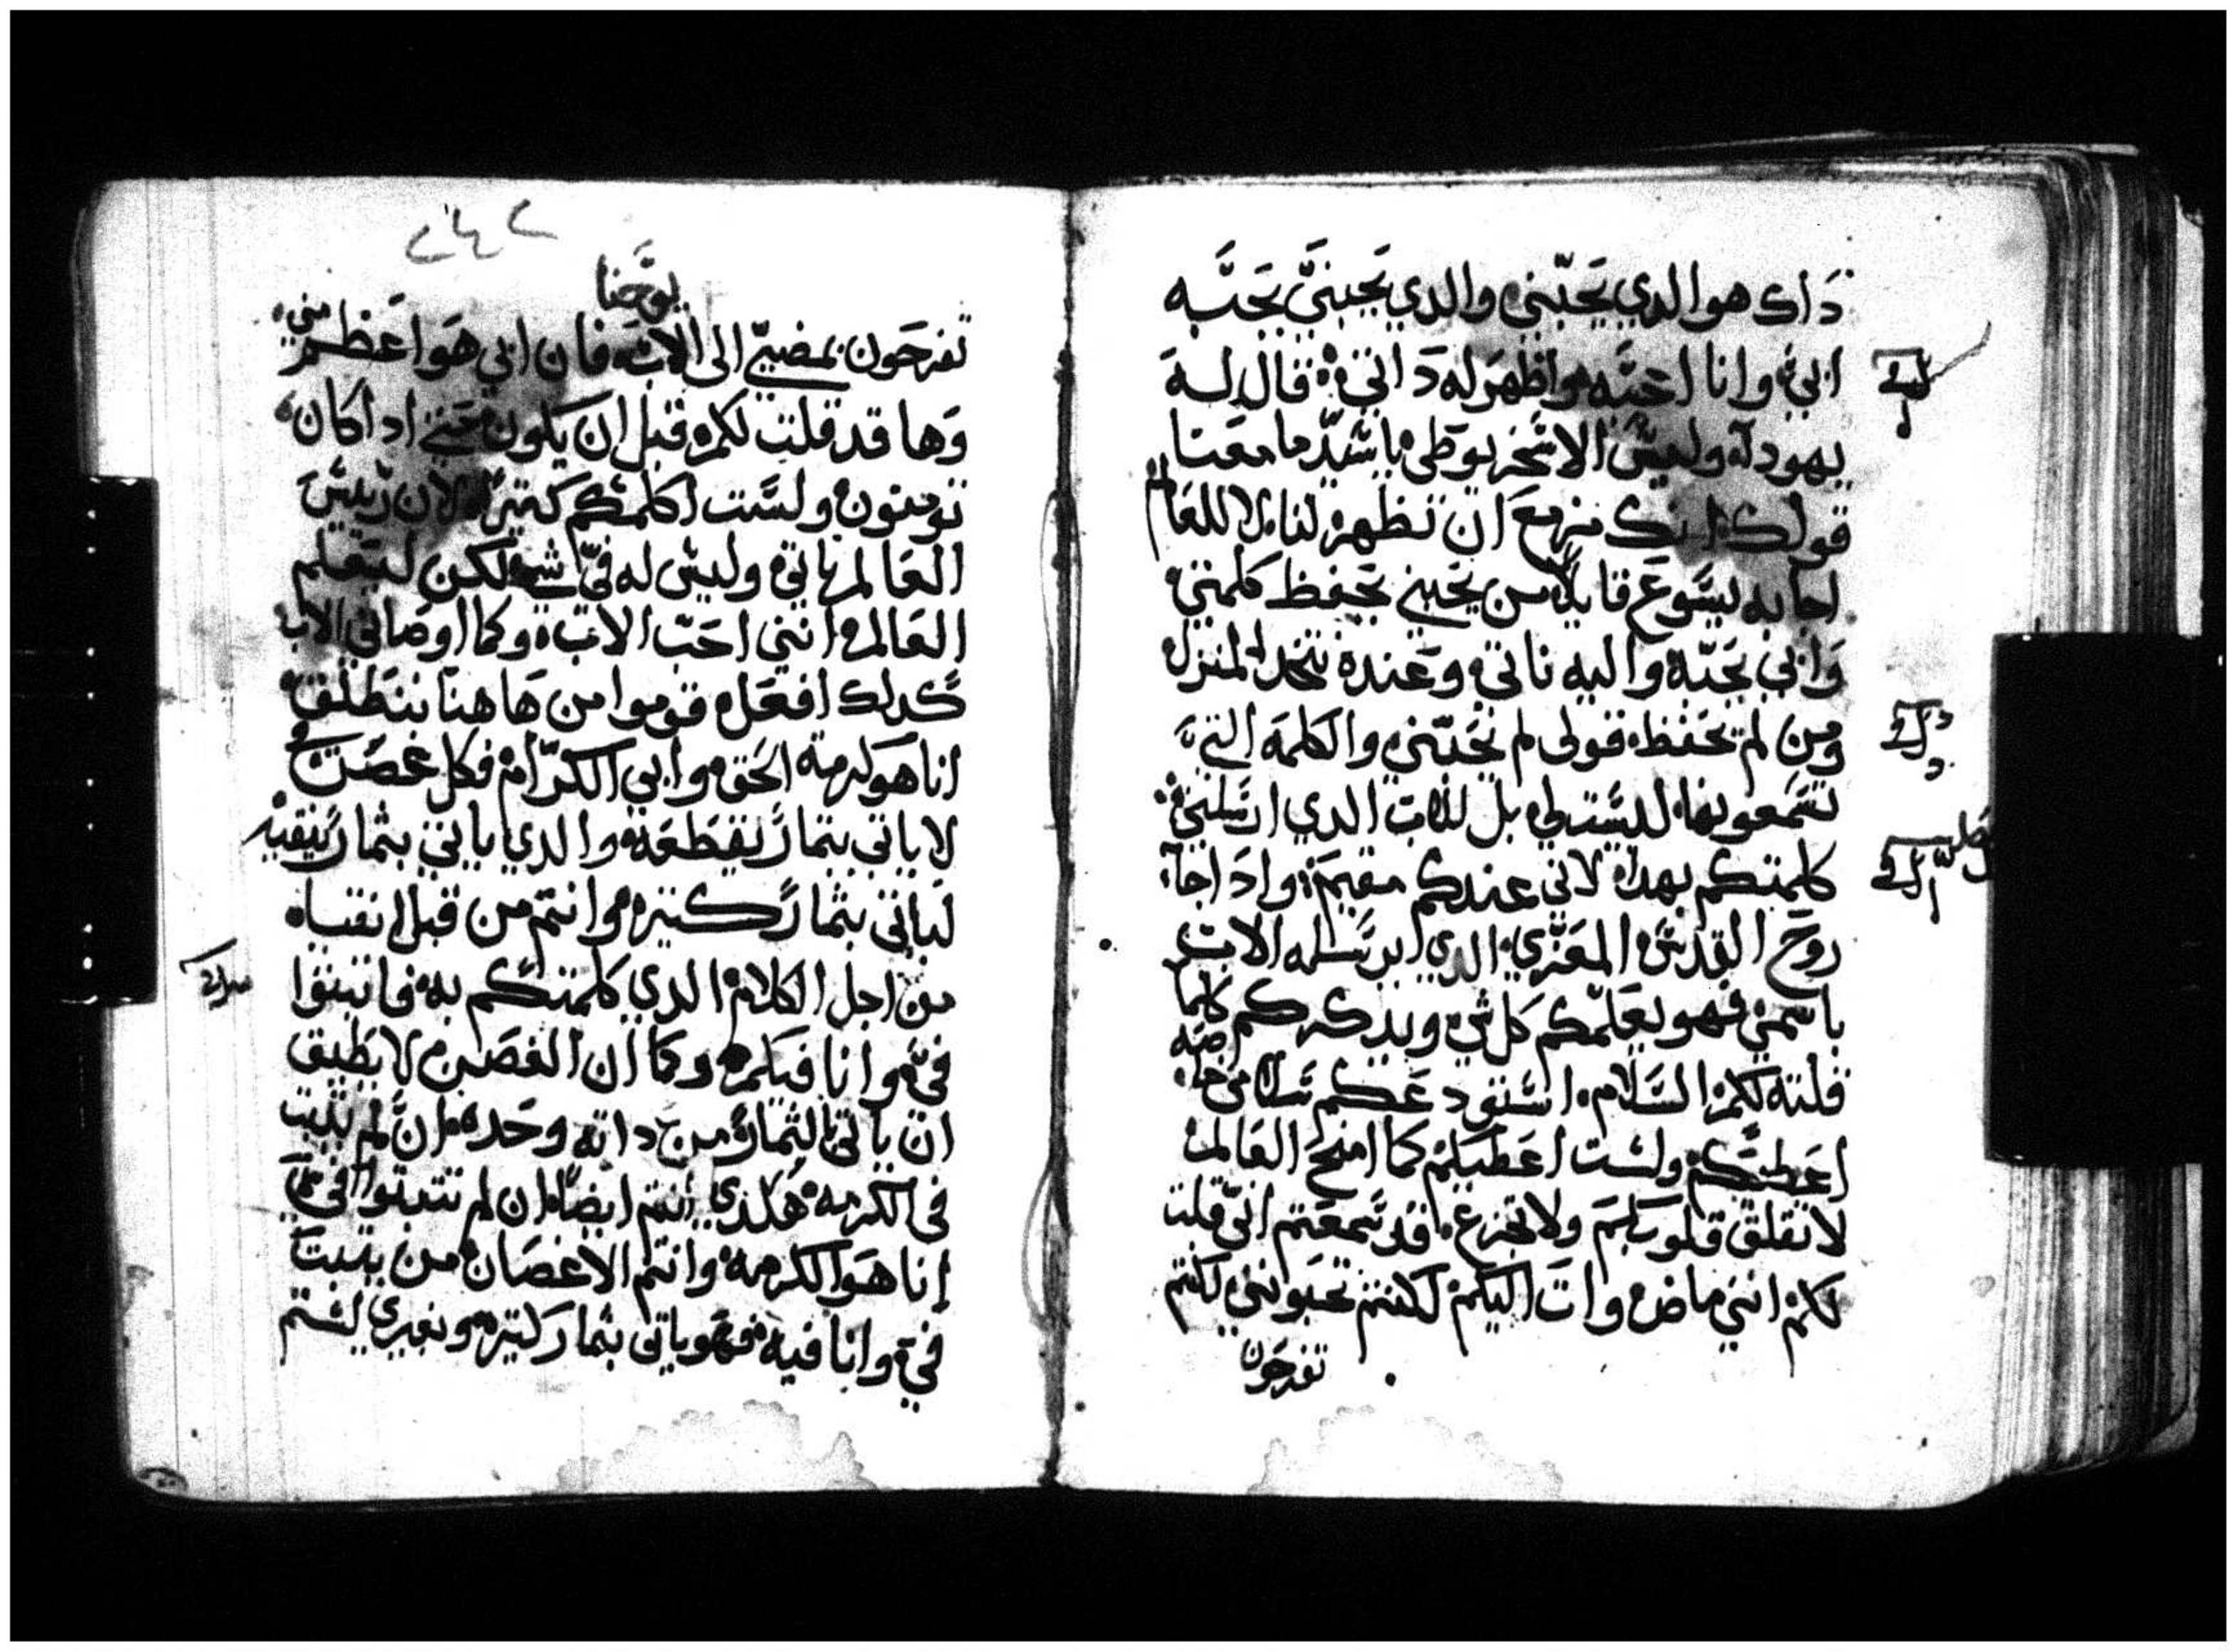 داك هو الدي يحبّني والدي يحبنيّ يحبَّه
ابي وانا احبَّه واظهر له داتي قال له
يهودا وليس الاسخريوطي ياسيّد ما معنا
قولك انك مزمع ان تظهر لنا لا للعالم
اجابه يسَوع قايلاً من يحبني يحفظ كلمتي
وابي يحبّه واليه ناتي وعنده نتخد المنزل
ومن لم يحفظ قولي لم يحبّني والكلمة التي
تسمعونها ليست لي بل للاب الدي ارسلني
كلمتكم بهدا لاني عندكم مقيم وادا جا
روح القدس المعزي الدي يرسله الاب
باسمي فهو يعلمكم كل شي ويدكركم كلما
قلته لكم السَلام استودعكم سلامي خاصه
اعطيكم ولست اعطيكم كما امنح العالم
لا تقلق قلوبكم ولا تجزع قد سمعتم انّي قلت
لكم انني ماض وات اليكم لو كنتم تحبونني لكنتم
تفرحون
٢٤٢
يوحنا
تفرحون بمضييّ الى الاب فان ابي هو اعظم مني
وها قد قلت لكم قبل ان يكون حتي ادا كان
تومنون ولست اكلمكم كتيراً لان رييس
العالم ياتي وليس له فيّ شي لكن ليعلم
العالم انني احبّ الاب وكما اوصاني الاب
كدلك افعل قوموا من هاهنا ننطلق
انا هو كرمة الحق وابي الكرّام فكل غصن
لا ياتي بثمار يقطعه والدي ياتي بثمار ينقيه
لياتي بثمار كتيره وانتم من قبل انقياه
من اجل الكلام الدي كلمتكم به فاتبتوا
فيّ وانا فيكم وكما ان الغصن لا يطيق
ان ياتي بالثمار من داته وحده ان لم يتبت
في الكرمه هكدي انتم ايضاً ان لم تتبتوا فيّ
انا هو الكرمه وانتم الاغصان من يتبت
فيّ وانا فيه فهو ياتي بثمار كتيره وبغيري لستم